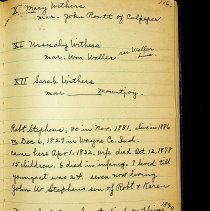 X Mary Withers
mar. John Routt of Culpeper
XI Ursualy Withers
mar. Wm Waller see Waller
Line.
XII Sarah Withers
mar Mountjoy.
Robt Stephens, 80 in Nov. 1881, alive in 1886
Dec 6, 1829 in Wayne Co. Ind.
came here Apr. 1832. wife died Oct 12, 1878
15 children. 6 died in infancy. 1 lived till
youngest was 24. seven now living
John W. Stephens son of Robt & Karen